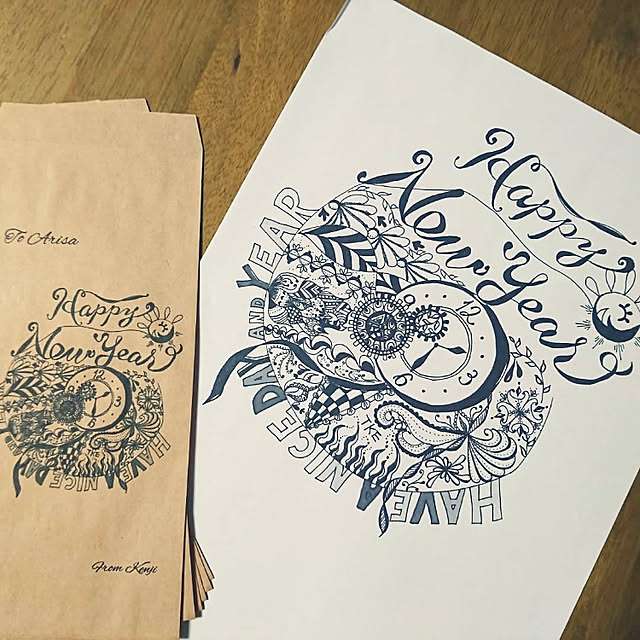 To Arisa
Happy
New Year
12
3
6
HAVE A NICE DAY AND YEAR
From Kenji
Happy
New Year
12
3
6
9
HAVE A NICE DAY AND YEAR